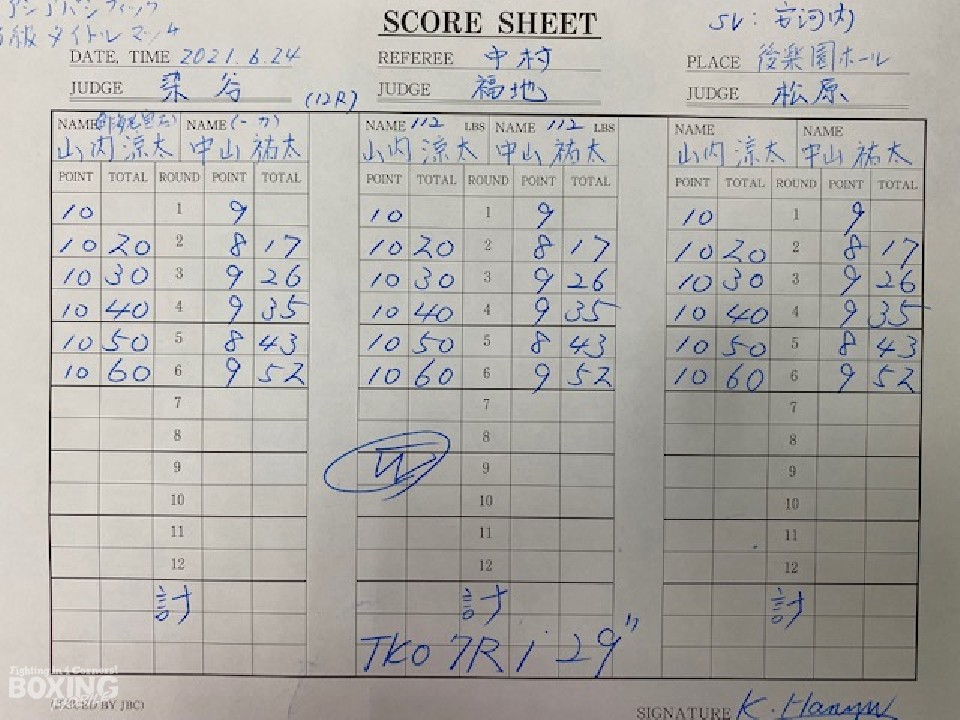 アジアパシフィック
SCORE SHEET SV: 安河内
級タイトルマッチ
DATE, TIME 2021.6.24 REFEREE 中村 PLACE 後楽園ホール
JUDGE 染谷 (12R) JUDGE 福地 JUDGE 松原
NAME NAME (一力) NAME 112 LBS NAME 112 LBS NAME NAME
山内涼太 中山祐太 山内涼太 中山祐太 山内涼太 中山祐太
POINT TOTAL ROUND POINT TOTAL POINT TOTAL ROUND POINT TOTAL POINT TOTAL ROUND POINT TOTAL
10 1 9 10 1 9 10 1 9
10 20 2 8 17 10 20 2 8 17 10 20 2 8 17
10 30 3 9 26 10 30 3 9 26 10 30 3 9 26
10 40 4 9 35 10 40 4 9 35 10 40 4 9 35
10 50 5 8 43 10 50 5 8 43 10 50 5 8 43
10 60 6 9 52 10 60 6 9 52 10 60 6 9 52
7 7 7
8 8 8
9 W 9 9
10 10 10
11 11 11
12 12 12
計 計 計
TKO 7R 1' 29"
Fighting in 4 Corners!
BOXING
(ISSUED BY JBC) SIGNATURE K. Hanyu